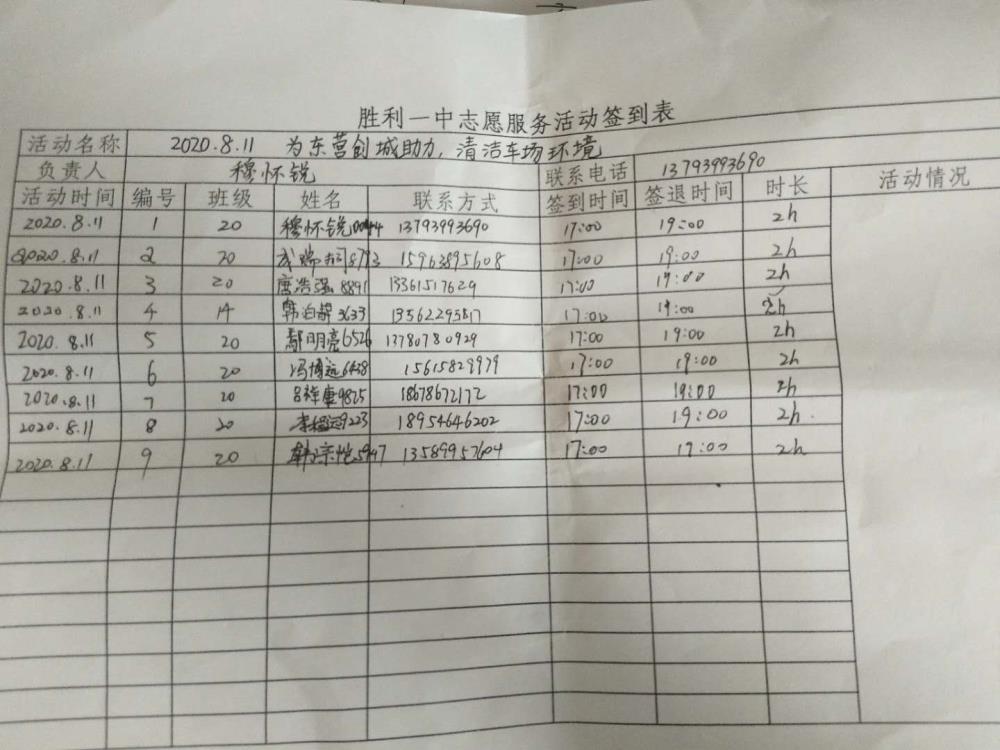 胜利一中志愿服务活动签到表
活动名称 2020.8.11 为东营创城助力，清洁车场环境
负责人 穆怀锐 联系电话 13793993690
活动时间 编号 班级 姓名 联系方式 签到时间 签退时间 时长 活动情况
2020.8.11 1 20 穆怀锐0044 13793993690 17:00 19:00 2h
2020.8.11 2 20 8793 15963895608 17:00 19:00 2h
2020.8.11 3 20 唐浩强8891 13361517629 17:00 19:00 2h
2020.8.11 4 14 3633 13562295817 17:00 19:00 2h
2020.8.11 5 20 鄢明亮6526 13780780929 17:00 19:00 2h
2020.8.11 6 20 冯博远6438 15615829979 17:00 19:00 2h
2020.8.11 7 20 吕祥康9825 18678672172 17:00 19:00 2h
2020.8.11 8 20 9223 18954646202 17:00 19:00 2h
2020.8.11 9 20 韩宗恺5947 13589957604 17:00 19:00 2h